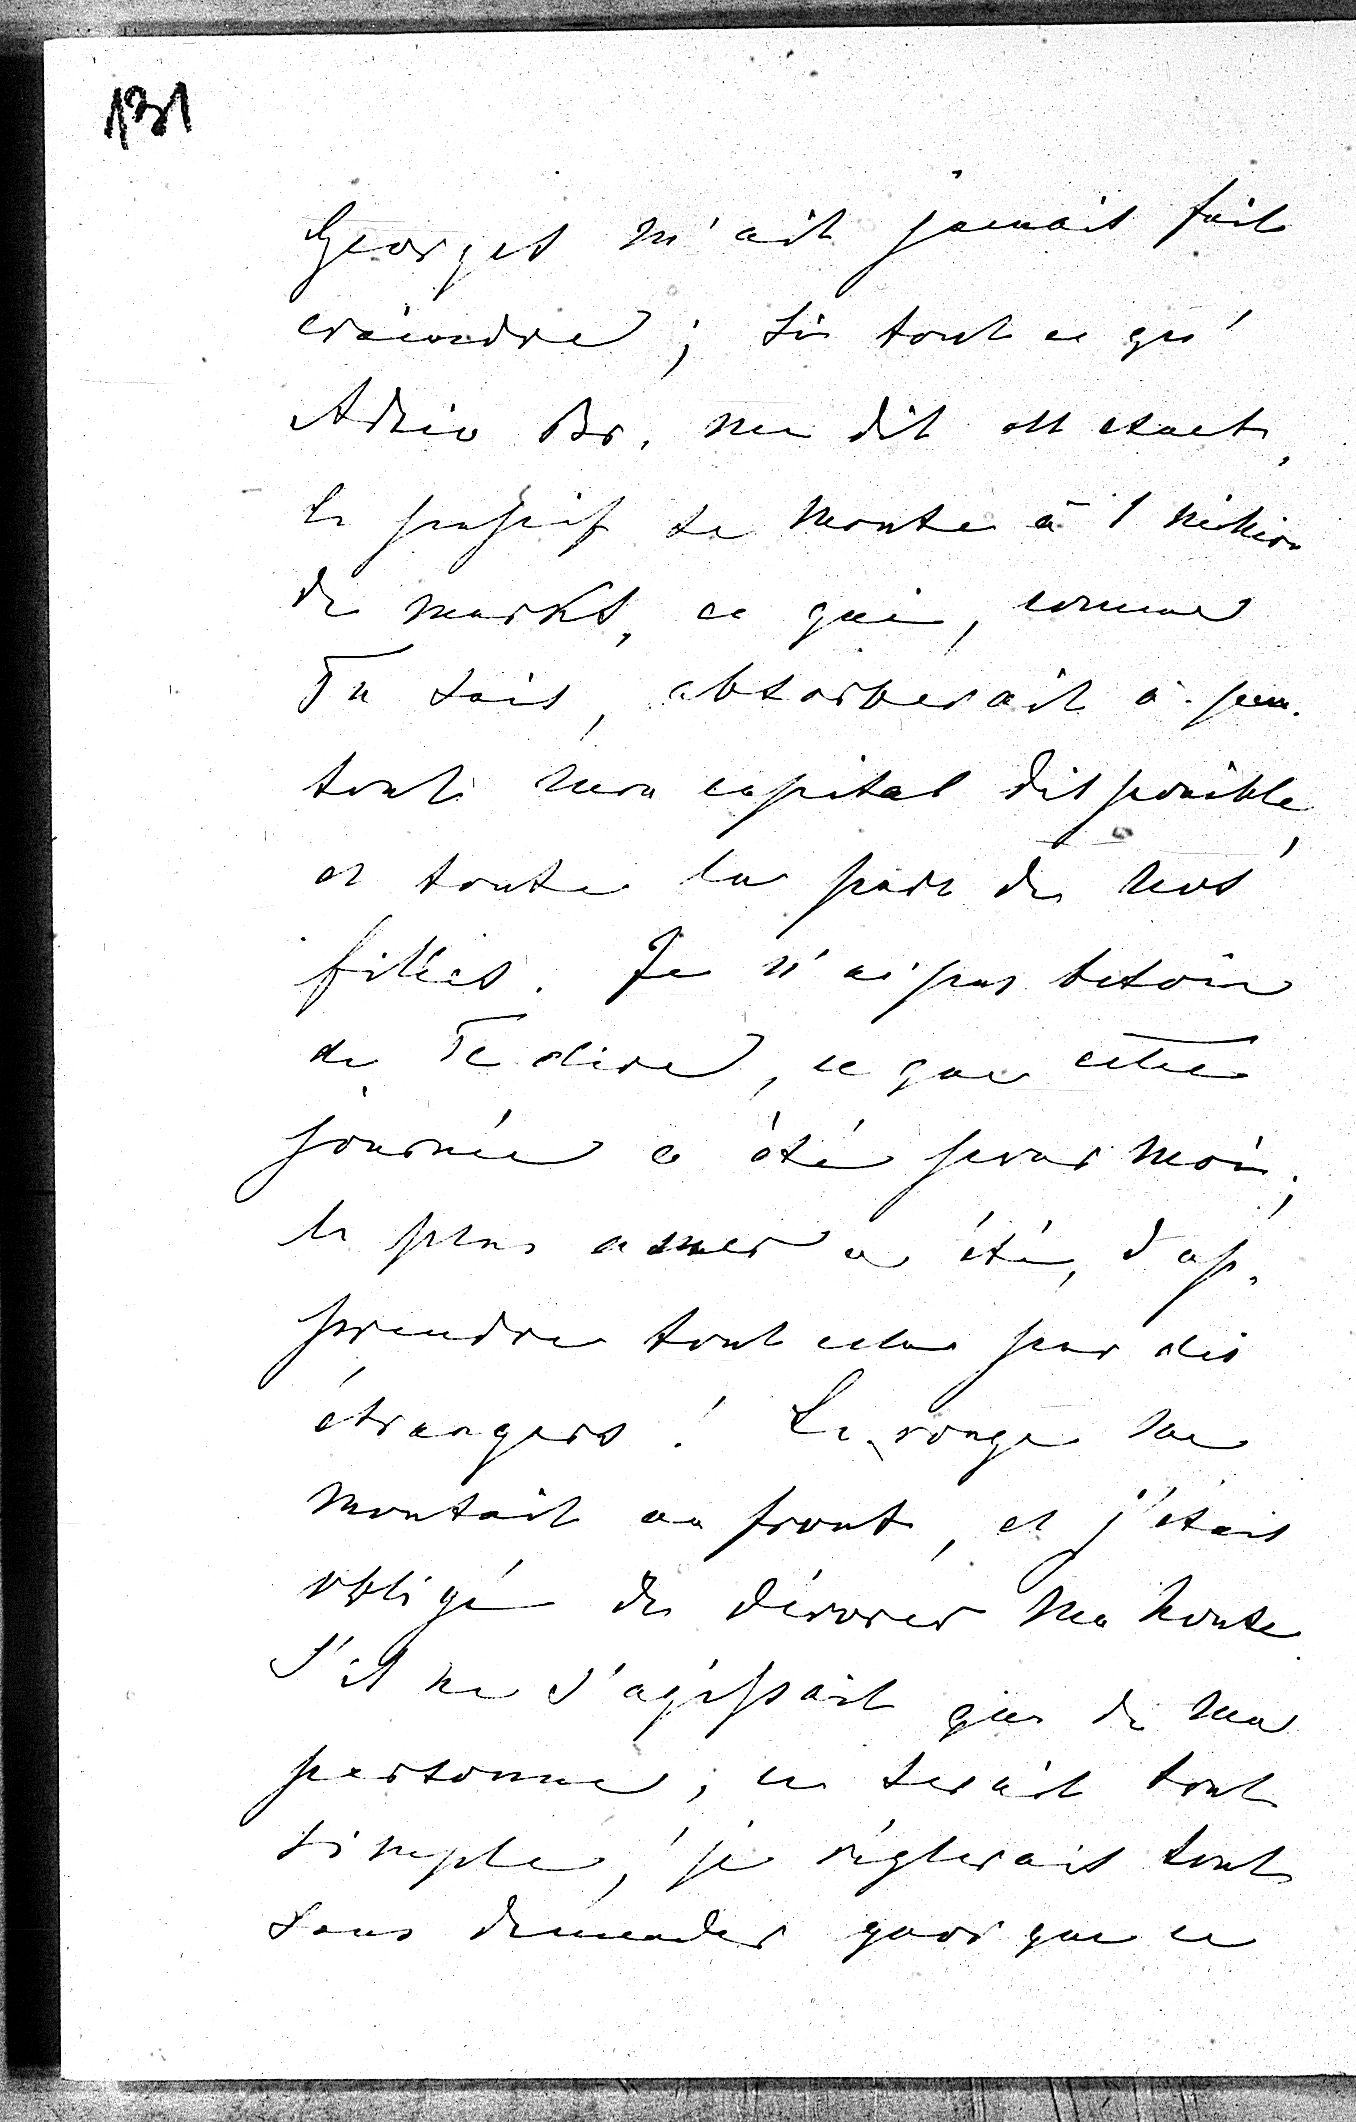 131
Georges m'ait jamais fait
craindre; si tout ce qu'
Br. me dit est exact,
le passif se monte à 1 million
de marks, ce qui, comme
Tu sais, absorberait à peu
tout mon capital disponible,
et toute la part de nos
filles. Je n'ai pas besoin
de Te dire, ce que cette
journée a été pour moi;
le plus amer a été, d'ap-
prendre tout cela par des
étrangers! Le rouge me
montait au front, et j'étais
obligé de dévorer ma honte.
S'il ne s'agissait que de ma
personne, ce serait tout
simple, je réglerais tout
sans demander quoi que ce